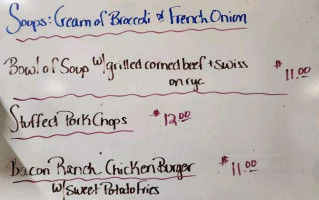 Soups: Cream of Broccoli or French Onion
Bowl of Soup w/ grilled corned beef + Swiss
on rye $11.00
Stuffed Pork Chops $12.00
Bacon Ranch Chicken Burger $11.00
w/ Sweet Potato Fries